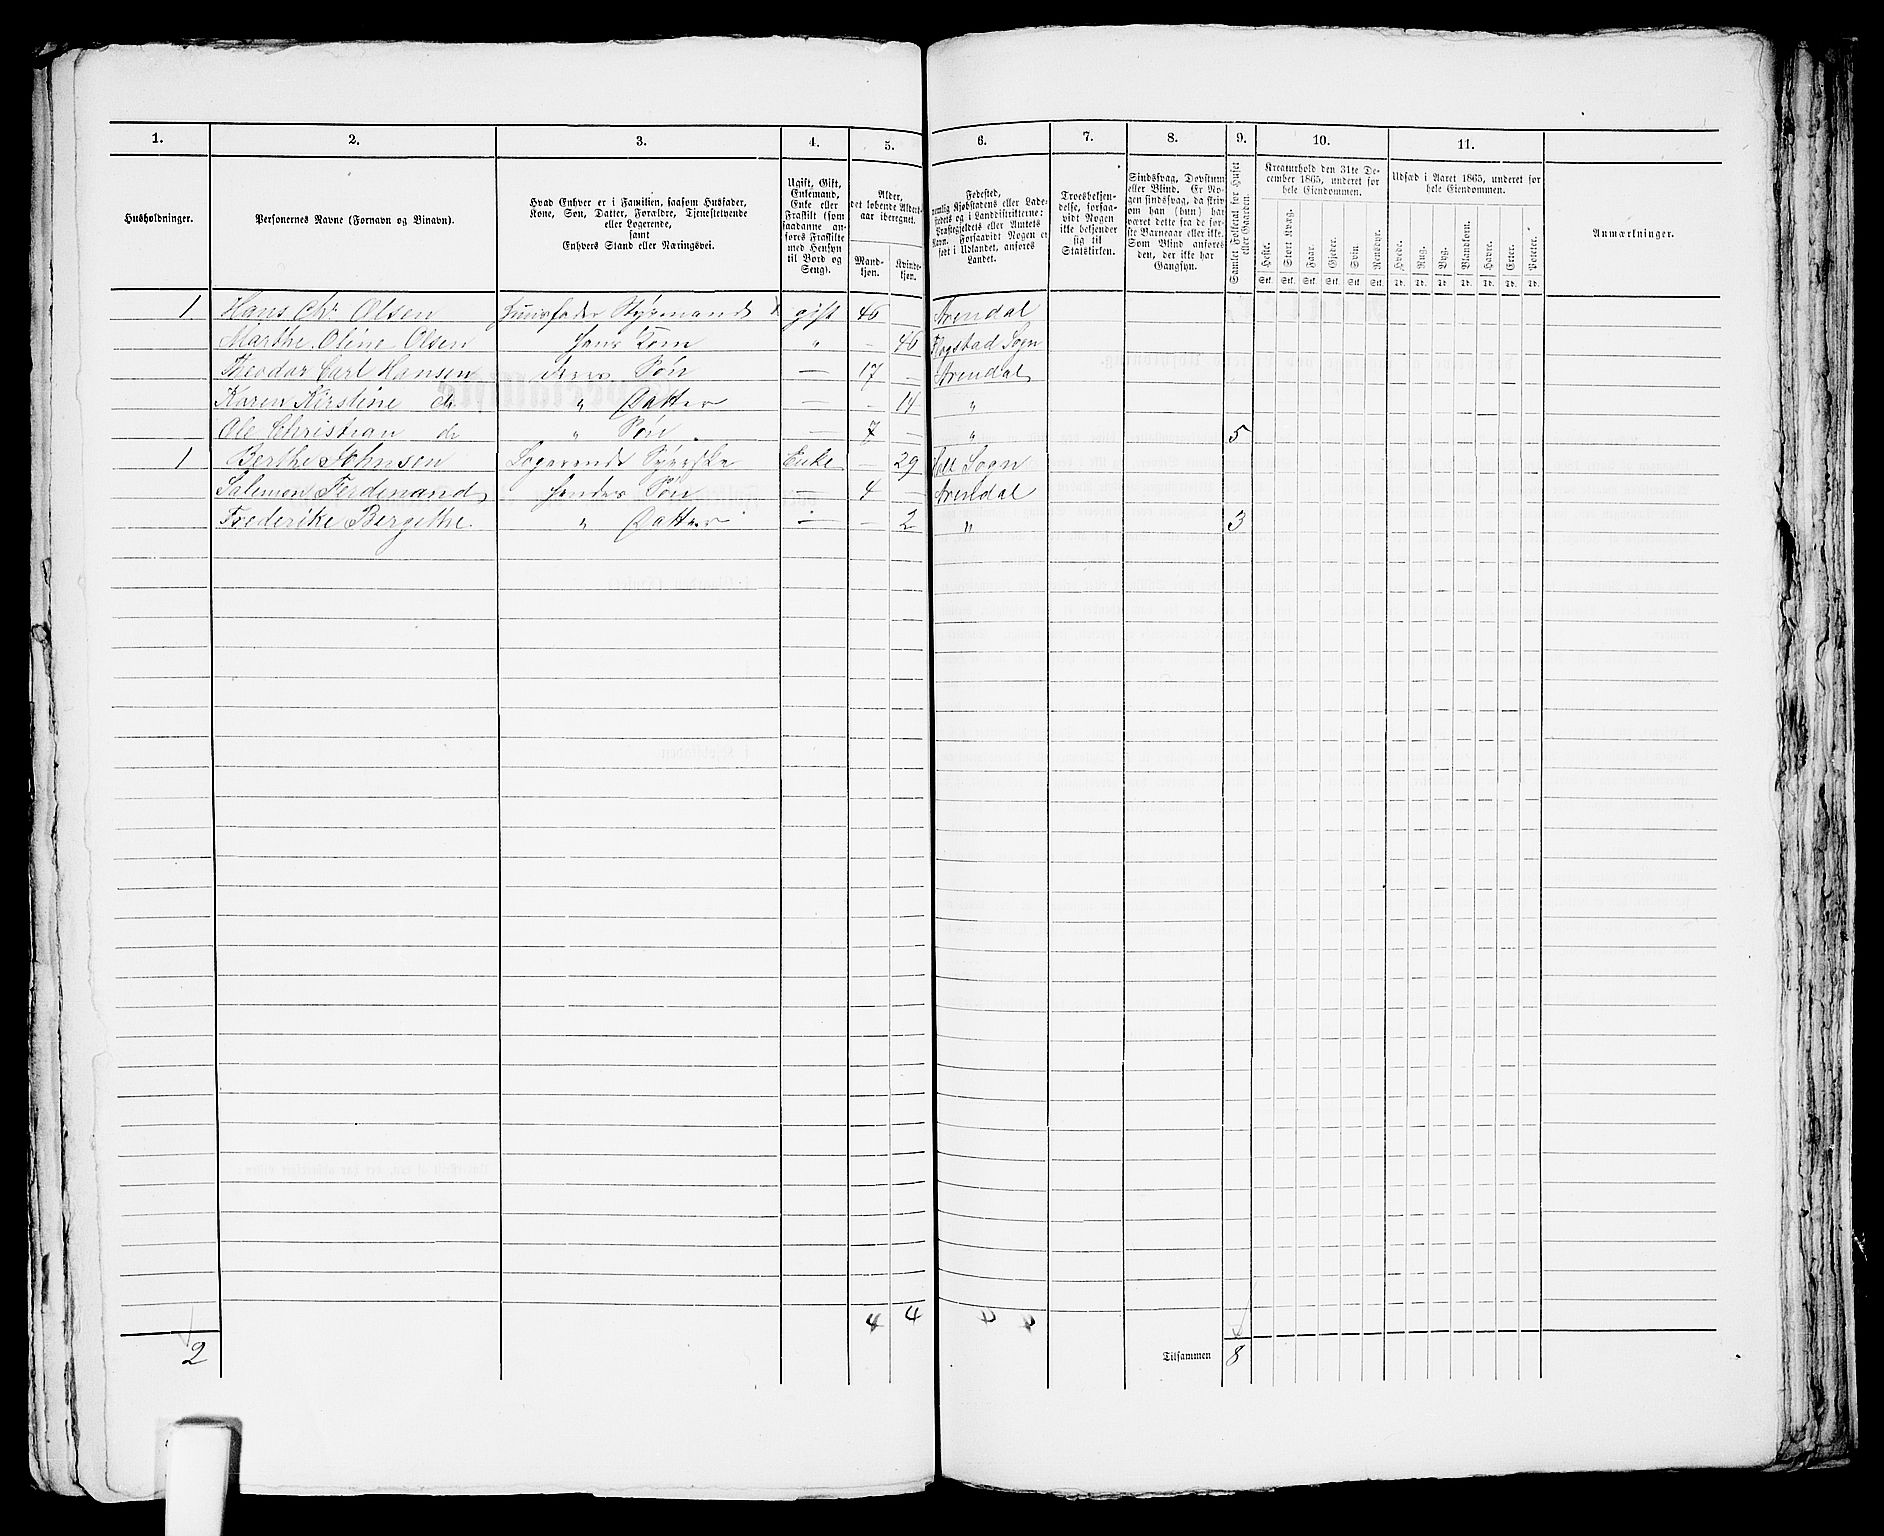 1. 2. 3. 4. 5. 6. 7. 8. 9. 10. 11.
Husholdninger.
Personernes Navne (Fornavn og Binavn).
Hvad Enhver er i Familien, saasom Husfader,
Kone, Søn, Datter, Forældre, Tjenestetyende
eller Logerende,
samt
Enhvers Stand eller Næringsvei.
Ugift, Gift,
Enkemand,
Enke eller
Fraskilt (som
saadanne an-
føres Fraskilte
med Hensyn
til Bord og
Seng).
Alder,
det løbende Alders-
aar iberegnet.
Mand-
kjøn.
Kvinde-
kjøn.
Fødested,
nemlig Kjøbstadens eller Lade-
stedets og i Landdistrikterne:
Præstegjeldets eller Amtets
Navn. Forsaavidt Nogen er
født i Udlandet, anføres
Landet.
Troesbekjen-
delse, forsaa-
vidt Nogen
ikke bekjender
sig til
Statskirken.
Sindssvag, Døvstum
eller Blind. Er No-
gen sindssvag, da skriv
om han (hun) har
været dette fra de før-
ste Barneaar eller ikke.
Som Blind anføres
den, der ikke har
Gangsyn.
Samlet Folketal for Huset
eller Gaarden.
Kreaturhold den 31te De-
cember 1865, underet for
hele Eiendommen.
Heste. Stort Kvæg. Faar. Gjeder. Svin. Rensdyr.
Stk. Stk. Stk. Stk. Stk. Stk.
Udsæd i Aaret 1865, underet for
hele Eiendommen.
Hvede. Rug. Byg. Blandkorn. Havre. Erter. Poteter.
Td. Td. Td. Td. Td. Td. Td.
Anmærkninger.
1 Hans Chr. Olsen Huusfader Styrmand gift 46 Arendal
Marthe Oline Olsen Hans Kone " - 46 Sogn
Theodor Carl Hansen deres Søn — 17 — Arendal
Karen Kirstine do " Datter — - 14 "
Ole Christian do " Søn — 7 — " 5
1 Berthe Johnsen Logerende Syerske Enke - 29 Holt Sogn
Salemon Ferdinand hendes Søn — 4 — Arendal
Frederike Bergithe " Datter — - 2 " 3
4 4
2 Tilsammen 8